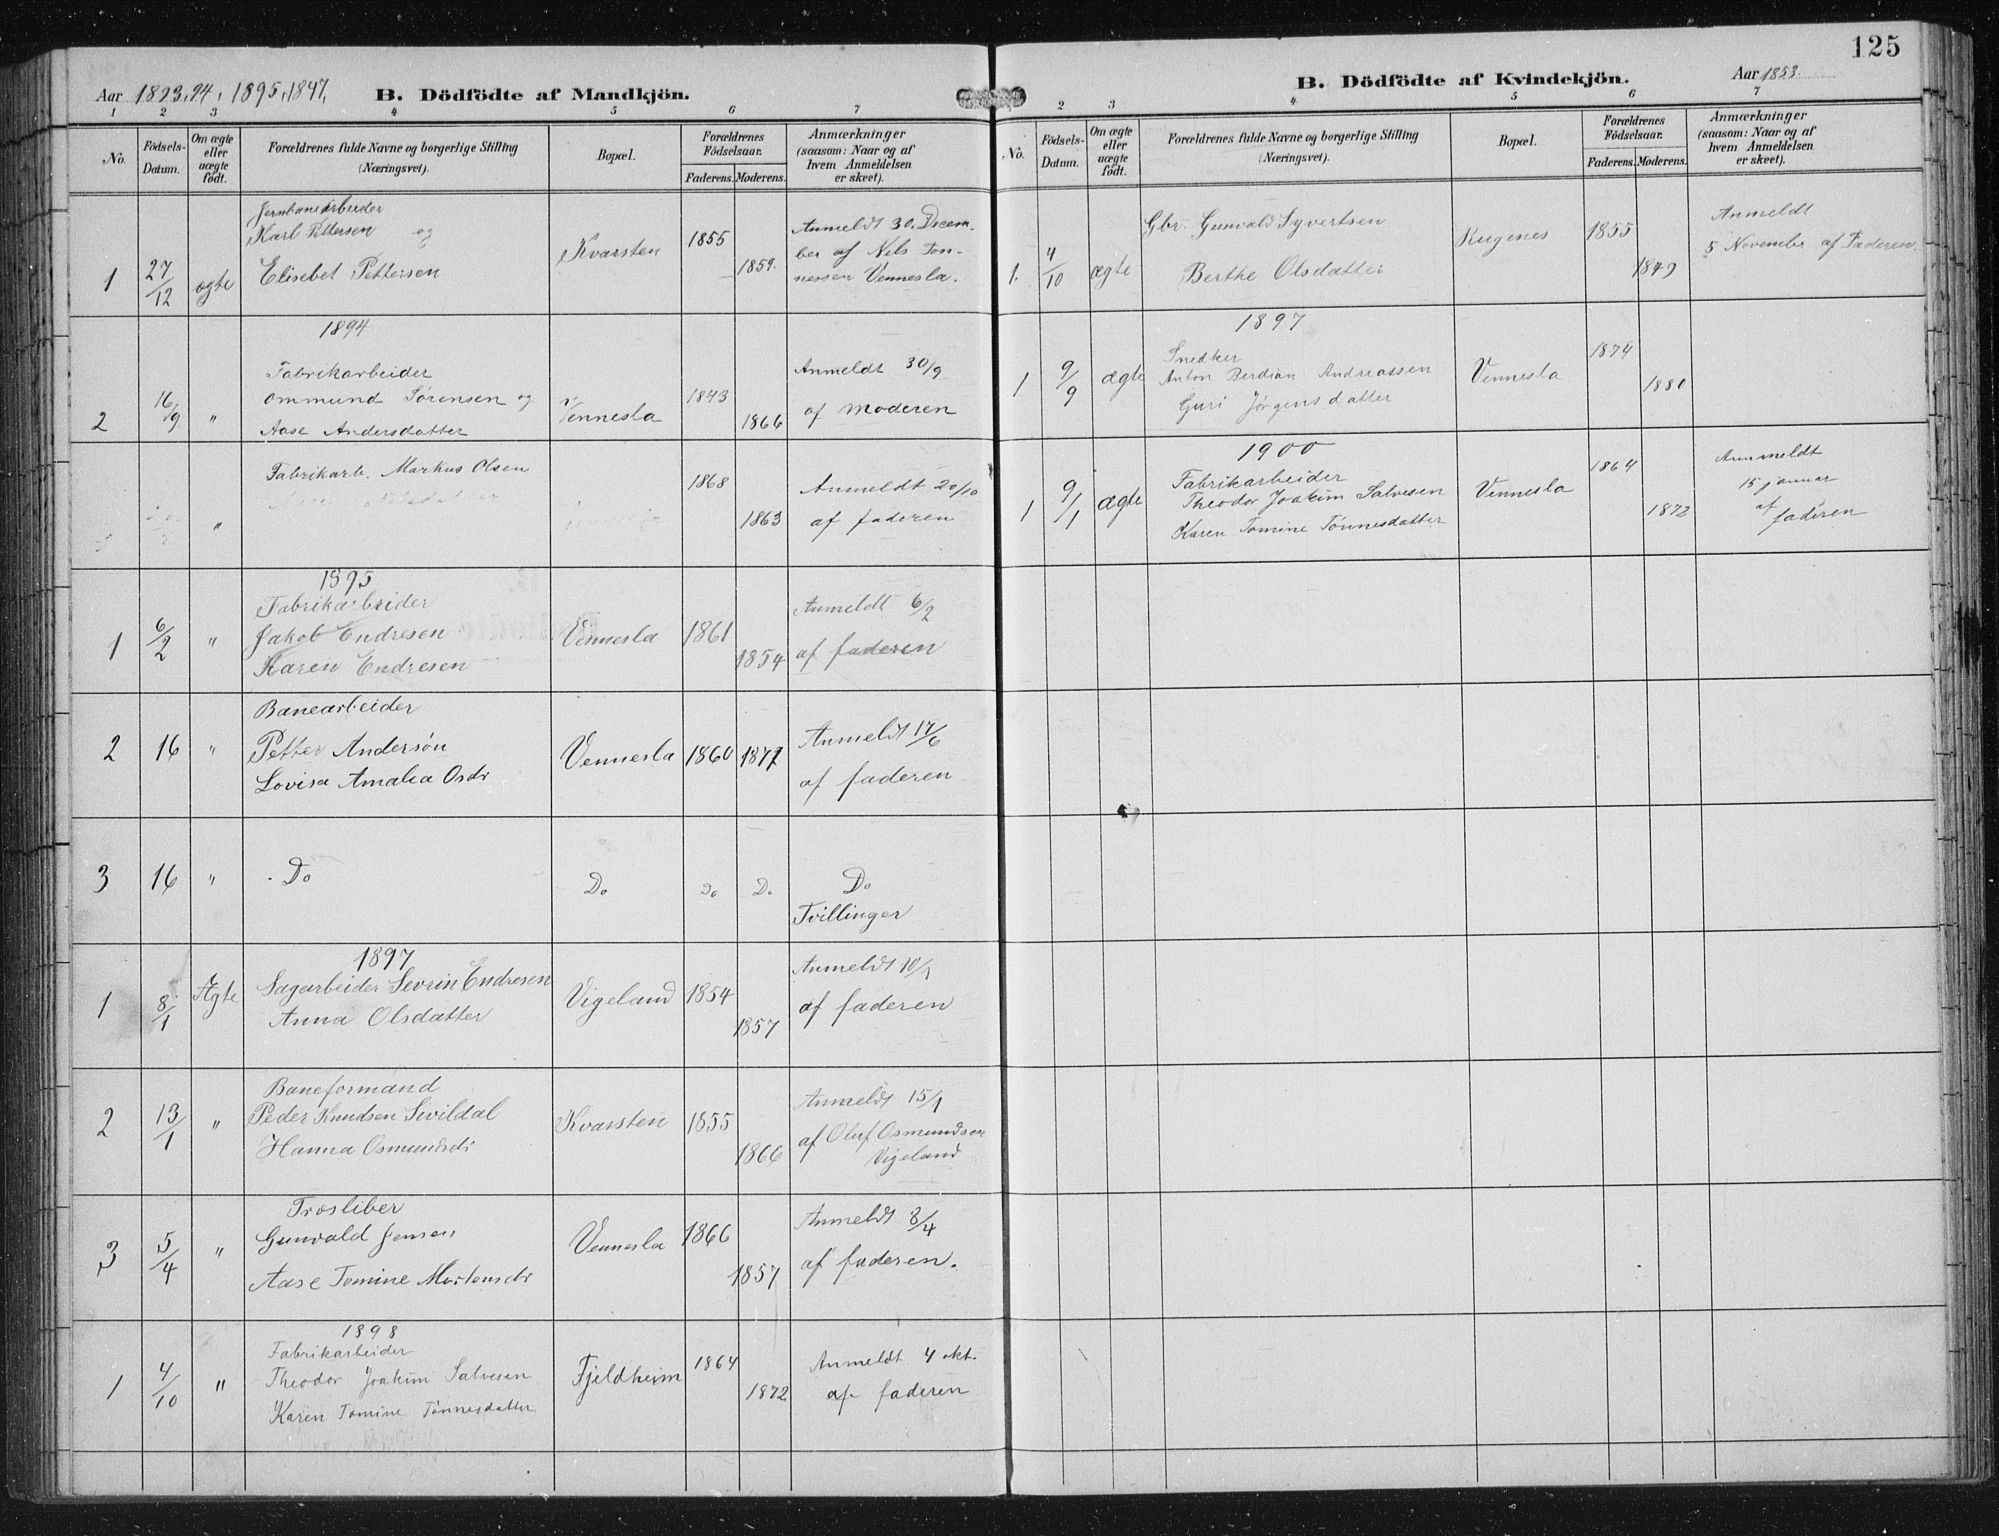 125
Aar 1893, 94, 1895, 1897,
B. Dödfödte af Mandkjön.
1 2 3 4 5 6 7
No.
Födsels-
Datum.
Om ægte
eller
uægte
födt.
Forældrenes fulde Navne og borgerlige Stilling
(Næringsvei).
Bopæl.
Forældrenes
Födselsaar.
Faderens. Moderens.
Anmærkninger
(saasom: Naar og af
hvem Anmeldelsen
er skeet).
1 27/12 ægte
Jernbanearbeider
Karl Pettersen og
Elisebet Pettersen
Kvarsten
1855
1859.
Anmeldt 30. Decem-
ber af Nils Ton-
nessen Vennesla.
1894
2 16/9 "
Fabrikarbeider
Ommund Sørensen og
Aase Andersdatter
Vennesla
1843
1866
Anmeldt 30/9
af Moderen
"
Fabrikarb. Markus Olsen
1868
1863
Anmeldt 20/10
af faderen
1895
1 6/2 "
Fabrikarbeider
Jakob Endresen
Karen Endresen
Vennesla
1861
1854
Anmeldt 6/2
af faderen
2 16 "
Banearbeider
Petter Andersøn
Lovisa Amalia Osdr
Vennesla
1860 1871
Anmeldt 17/6
af faderen
3 16 "
Do
Do
Do Do
Do
Tvillinger
1897
1 8/1 Ægte
Sagarbeider Sevrin Endresen
Anna Olsdatter
Vigeland
1854
1857
Anmeldt 10/1
af faderen
2 13/1 "
Baneformand
Peder Knudsen Sivildal
Hanna Osmundsdr
Kvarsten
1855
1866
Anmeldt 15/1
af Oluf Osmundsen
Vigeland
3 5/4 "
Træsliber
Gunvald Jensen
Aase Tomine Mortensdr
Vennesla
1866
1857
Anmeldt 8/4
af faderen.
1898
1 4/10 "
Fabrikarbeider
Theodor Joakim Salvesen
Karen Tomine Tønnesdatter
Fjeldheim
1864
1872
Anmeldt 4 okt.
af faderen
B. Dödfödte af Kvindekjön.
Aar 1853.
2 3 4 5 6 7
No.
Födsels-
Datum.
Om ægte
eller
uægte
födt.
Forældrenes fulde Navne og borgerlige Stilling
(Næringsvei).
Bopæl.
Forældrenes
Födselsaar.
Faderens. Moderens.
Anmærkninger
(saasom: Naar og af
hvem Anmeldelsen
er skeet).
1. 4/10 ægte
Gbr. Gunvald Syvertsen
Berthe Olsdatter
Rugenes
1855
1849
Anmeldt
5 November af Faderen,
1897
1 9/9 ægte
Snedker
Anton Berdian Andreassen
Guri Jørgensdatter
Vennesla
1874
1880
1900
1 9/1 ægte
Fabrikarbeider
Theodor Joakim Salvesen
Karen Tomine Tønnesdatter
Vennesla
1864
1872
Anmeldt
15 januar
af
faderen